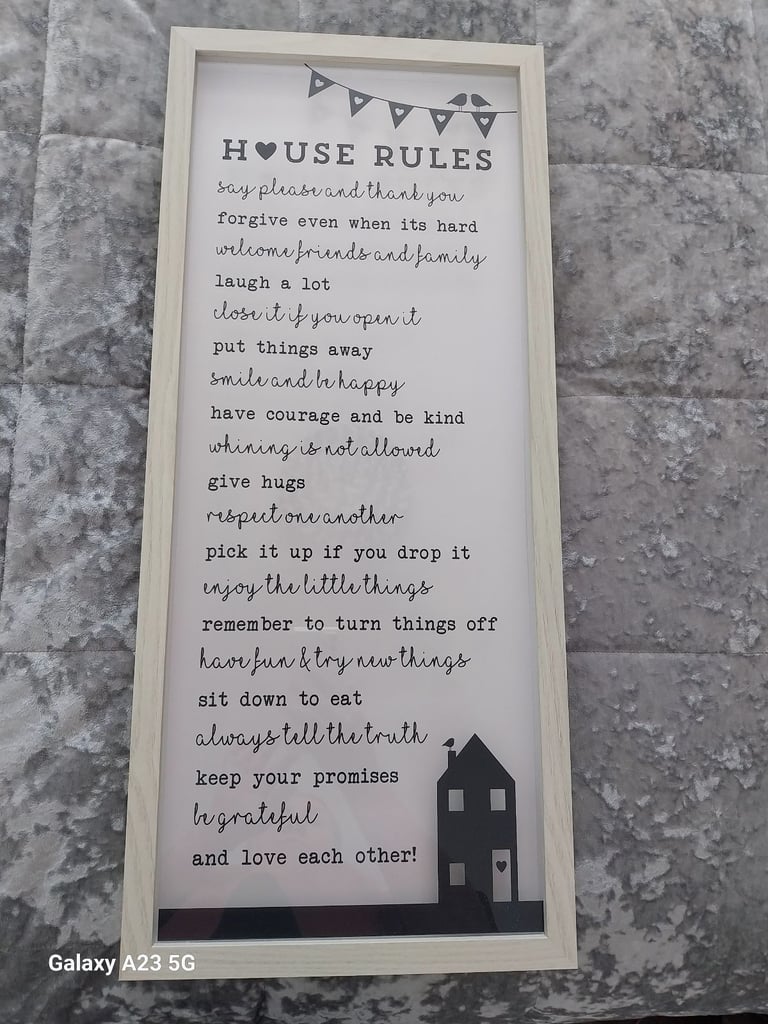 H♥USE RULES
say please and thank you
forgive even when its hard
welcome friends and family
laugh a lot
close it if you open it
put things away
smile and be happy
have courage and be kind
whining is not allowed
give hugs
respect one another
pick it up if you drop it
enjoy the little things
remember to turn things off
have fun & try new things
sit down to eat
always tell the truth
keep your promises
be grateful
and love each other!
Galaxy A23 5G